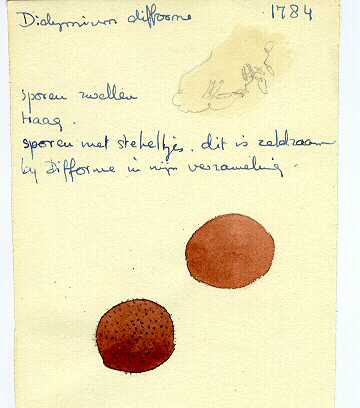 Didymium difforme 1784
sporen zwellen
traag.
sporen met stekeltjes. dit is zeldzaam
bij Difforme in mijn verzameling.